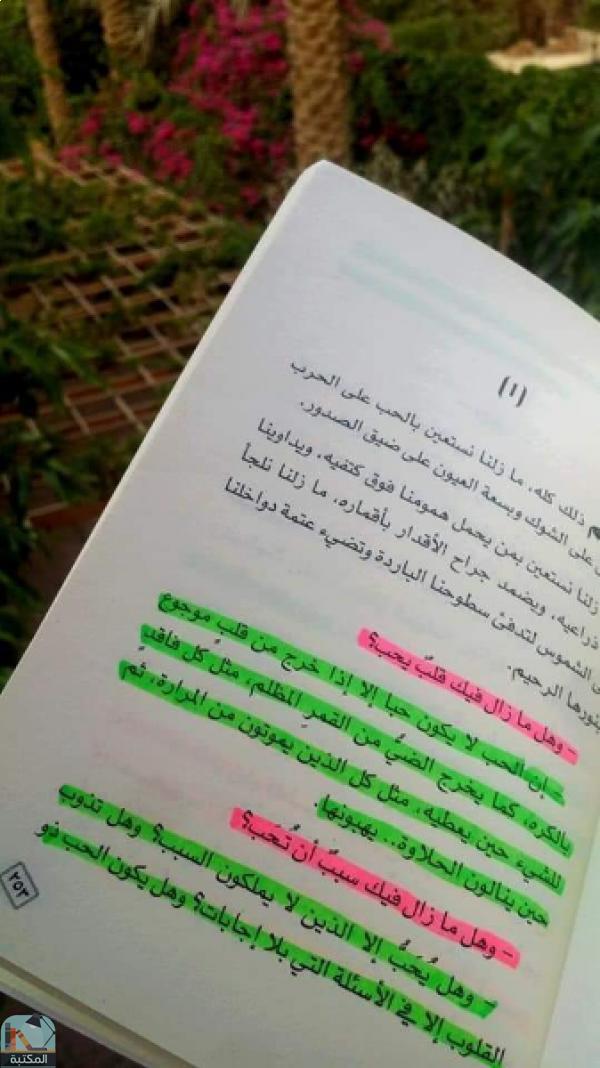 (١)
م ذلك كله، ما زلنا نستعين بالحب على الحرب
على الشوك وبسعة العيون على ضيق الصدور.
زلنا نستعين بمن يحمل همومنا فوق كتفيه، ويداوينا
ذراعيه، ويضمد جراح الأقدار بأقماره، ما زلنا نلجأ
الشموس لتدفئ سطوحنا الباردة وتضيء عتمة دواخلنا
بنورها الرحيم.
- وهل ما زال فيك قلبٌ يحب؟
- إن الحب لا يكون حبا إلا إذا خرج من قلب موجوع
بالكره، كما يخرج الضيُّ من القمر المظلم، مثل كل فاقدٍ
للشيء حين يعطيه، مثل كل الذين يموتون من المرارة، ثم
حين ينالون الحلاوة.. يهبونها.
- وهل ما زال فيك سببٌ أن تُحَب؟
- وهل يُحَبُّ إلا الذين لا يملكون السبب؟ وهل تذوب
القلوب إلا في الأسئلة التي بلا إجابات؟ وهل يكون الحب ذو
٢٥٣
المكتبة